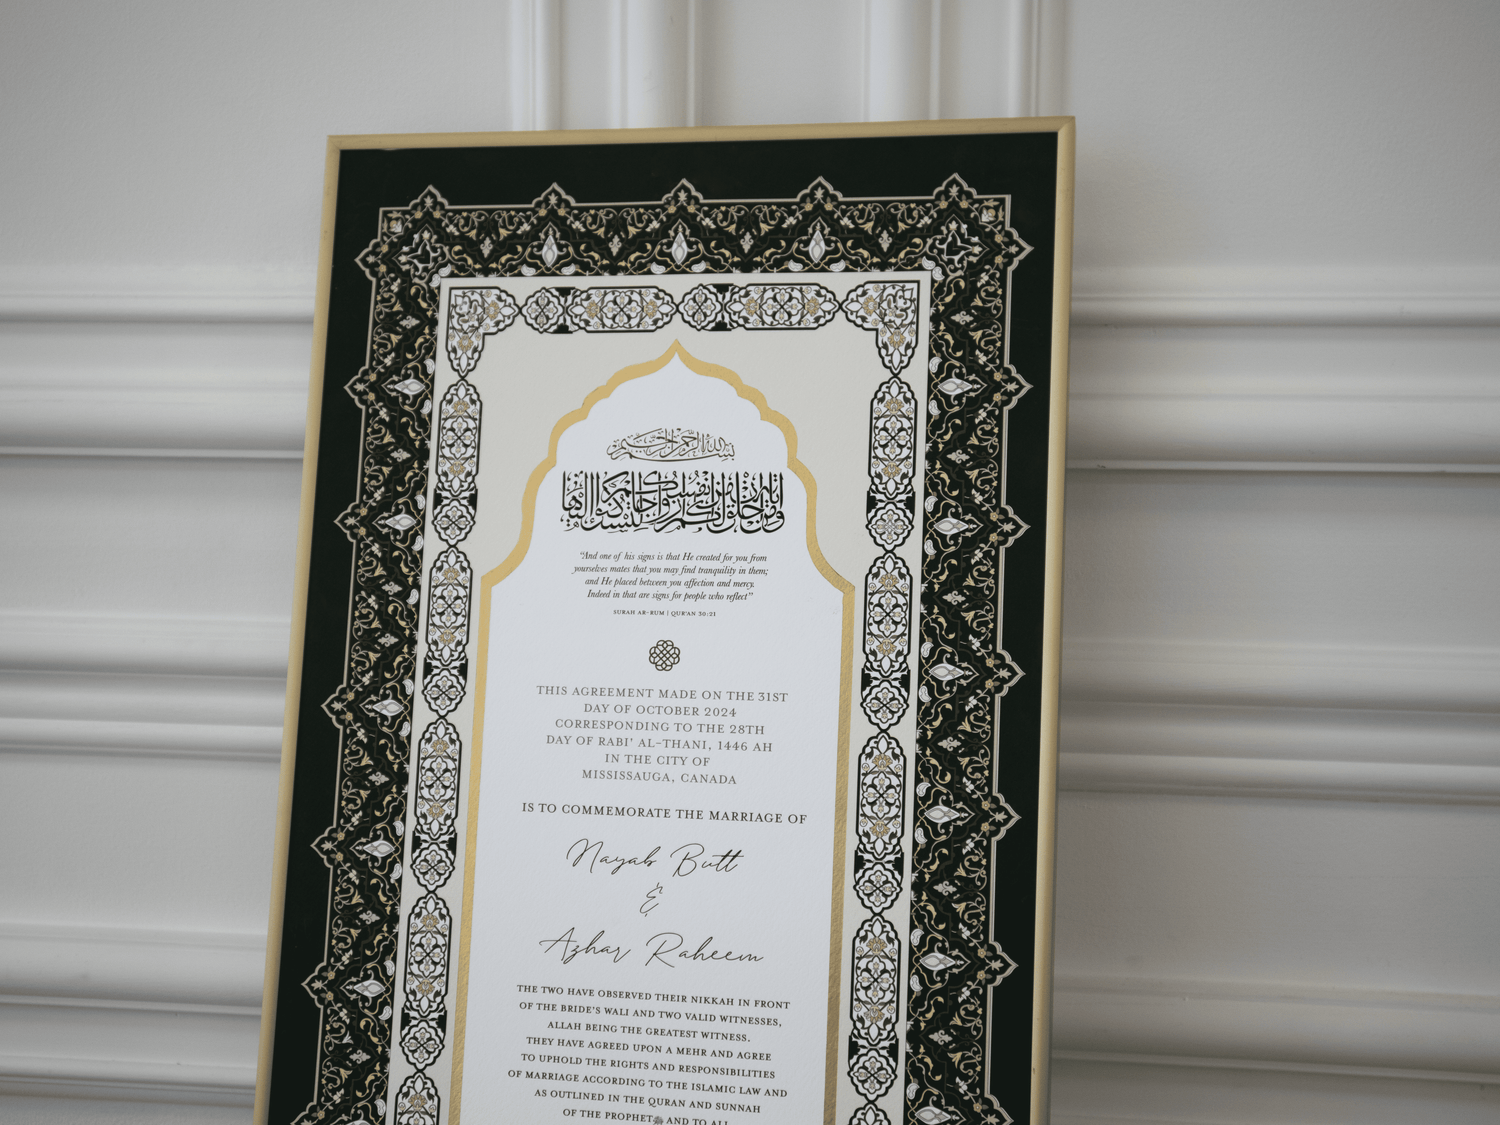 بسم الله الرحمن الرحيم
ومن آياته أن خلق لكم من أنفسكم أزواجا لتسكنوا إليها
“And one of his signs is that He created for you from
yourselves mates that you may find tranquility in them;
and He placed between you affection and mercy.
Indeed in that are signs for people who reflect”
SURAH AR-RUM | QUR'AN 30:21
THIS AGREEMENT MADE ON THE 31ST
DAY OF OCTOBER 2024
CORRESPONDING TO THE 28TH
DAY OF RABI' AL-THANI, 1446 AH
IN THE CITY OF
MISSISSAUGA, CANADA
IS TO COMMEMORATE THE MARRIAGE OF
Nayab Butt
&
Azhar Raheem
THE TWO HAVE OBSERVED THEIR NIKKAH IN FRONT
OF THE BRIDE'S WALI AND TWO VALID WITNESSES,
ALLAH BEING THE GREATEST WITNESS.
THEY HAVE AGREED UPON A MEHR AND AGREE
TO UPHOLD THE RIGHTS AND RESPONSIBILITIES
OF MARRIAGE ACCORDING TO THE ISLAMIC LAW AND
AS OUTLINED IN THE QURAN AND SUNNAH
OF THE PROPHETﷺ AND TO ALL